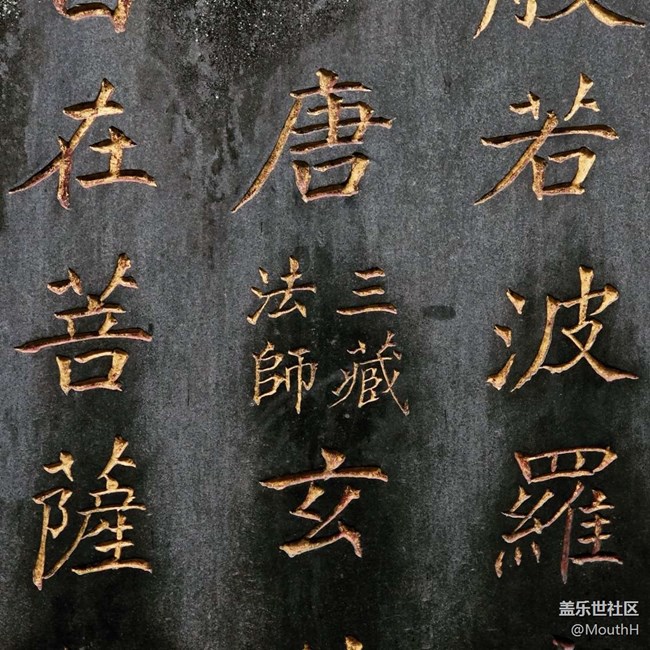 般若波羅
唐三藏法師玄
自在菩薩
盖乐世社区
@MouthH